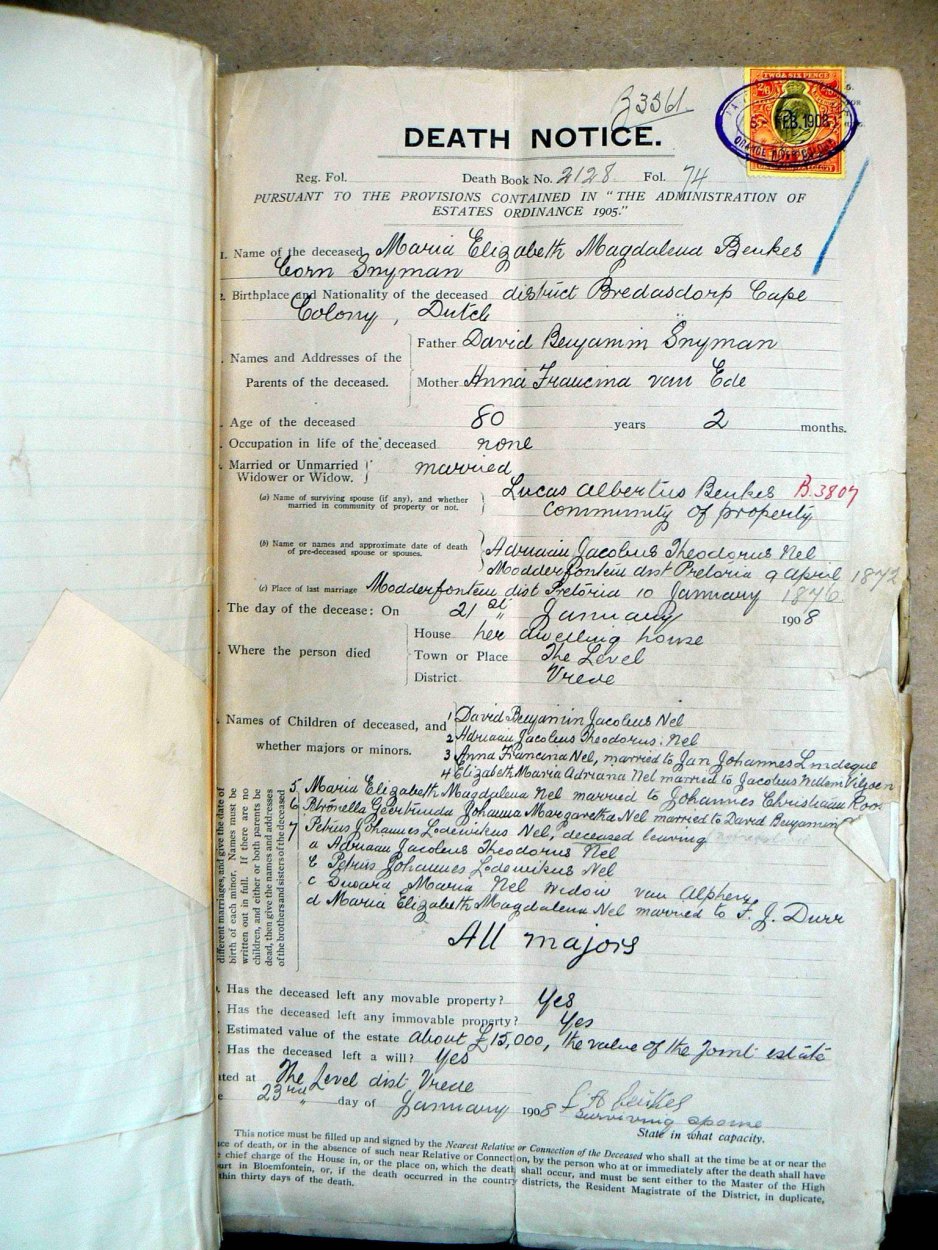 B 3361.
TWO & SIX PENCE
2/6
5 - FEB. 1908
DEATH NOTICE.
Reg. Fol. Death Book No. 2128 Fol. 74
PURSUANT TO THE PROVISIONS CONTAINED IN "THE ADMINISTRATION OF
ESTATES ORDINANCE 1905."
1. Name of the deceased Maria Elizabeth Magdalena Beukes
born Snyman
2. Birthplace and Nationality of the deceased district Bredasdorp Cape
Colony, Dutch
Names and Addresses of the
Parents of the deceased.
Father David Benjamin Snyman
Mother Anna Francina van Ede
Age of the deceased 80 years 2 months.
Occupation in life of the deceased none
Married or Unmarried
Widower or Widow. married
(a) Name of surviving spouse (if any), and whether
married in community of property or not.
Lucas Albertus Beukes B.3807
community of property
(b) Name or names and approximate date of death
of pre-deceased spouse or spouses.
Adriaan Jacobus Theodorus Nel
Modderfontein dist Pretoria 9 April 1872
(c) Place of last marriage Modderfontein dist Pretoria 10 January 1876
The day of the decease: On 21st January 1908
Where the person died
House her dwelling house
Town or Place The Level
District Vrede
Names of Children of deceased, and
whether majors or minors.
1 David Benjamin Jacobus Nel
2 Adriaan Jacobus Theodorus Nel
3 Anna Francina Nel, married to Jan Johannes Lindeque
4 Elizabeth Maria Adriana Nel married to Jacobus Willem Viljoen
5. Maria Elizabeth Magdalena Nel married to Johannes Christiaan Roos
6 Petronella Geertruida Johanna Margaretha Nel married to David Benjamin
7 Petrus Johannes Lodewikus Nel, deceased leaving
a Adriaan Jacobus Theodorus Nel
b Petrus Johannes Lodewikus Nel
c Susara Maria Nel widow van Alphen
d Maria Elizabeth Magdalena Nel married to F. J. Durr
All majors
different marriages, and give the date of
birth of each minor. Names must be
written out in full. If there are no
children, and either or both parents be
dead, then give the names and addresses
of the brothers and sisters of the deceased
Has the deceased left any movable property? Yes
Has the deceased left any immovable property? Yes
Estimated value of the estate about £15,000, the value of the joint estate
Has the deceased left a will? Yes
ated at The Level dist Vrede
e 23rd day of January 1908 L A Beukes
Surviving spouse
State in what capacity.
This notice must be filled up and signed by the Nearest Relative or Connection of the Deceased who shall at the time be at or near the
ce of death, or in the absence of such near Relative or Connection, by the person who at or immediately after the death shall have
chief charge of the House in, or the place on, which the death shall occur, and must be sent either to the Master of the High
urt in Bloemfontein, or, if the death occurred in the country districts, the Resident Magistrate of the District, in duplicate,
thin thirty days of the death.